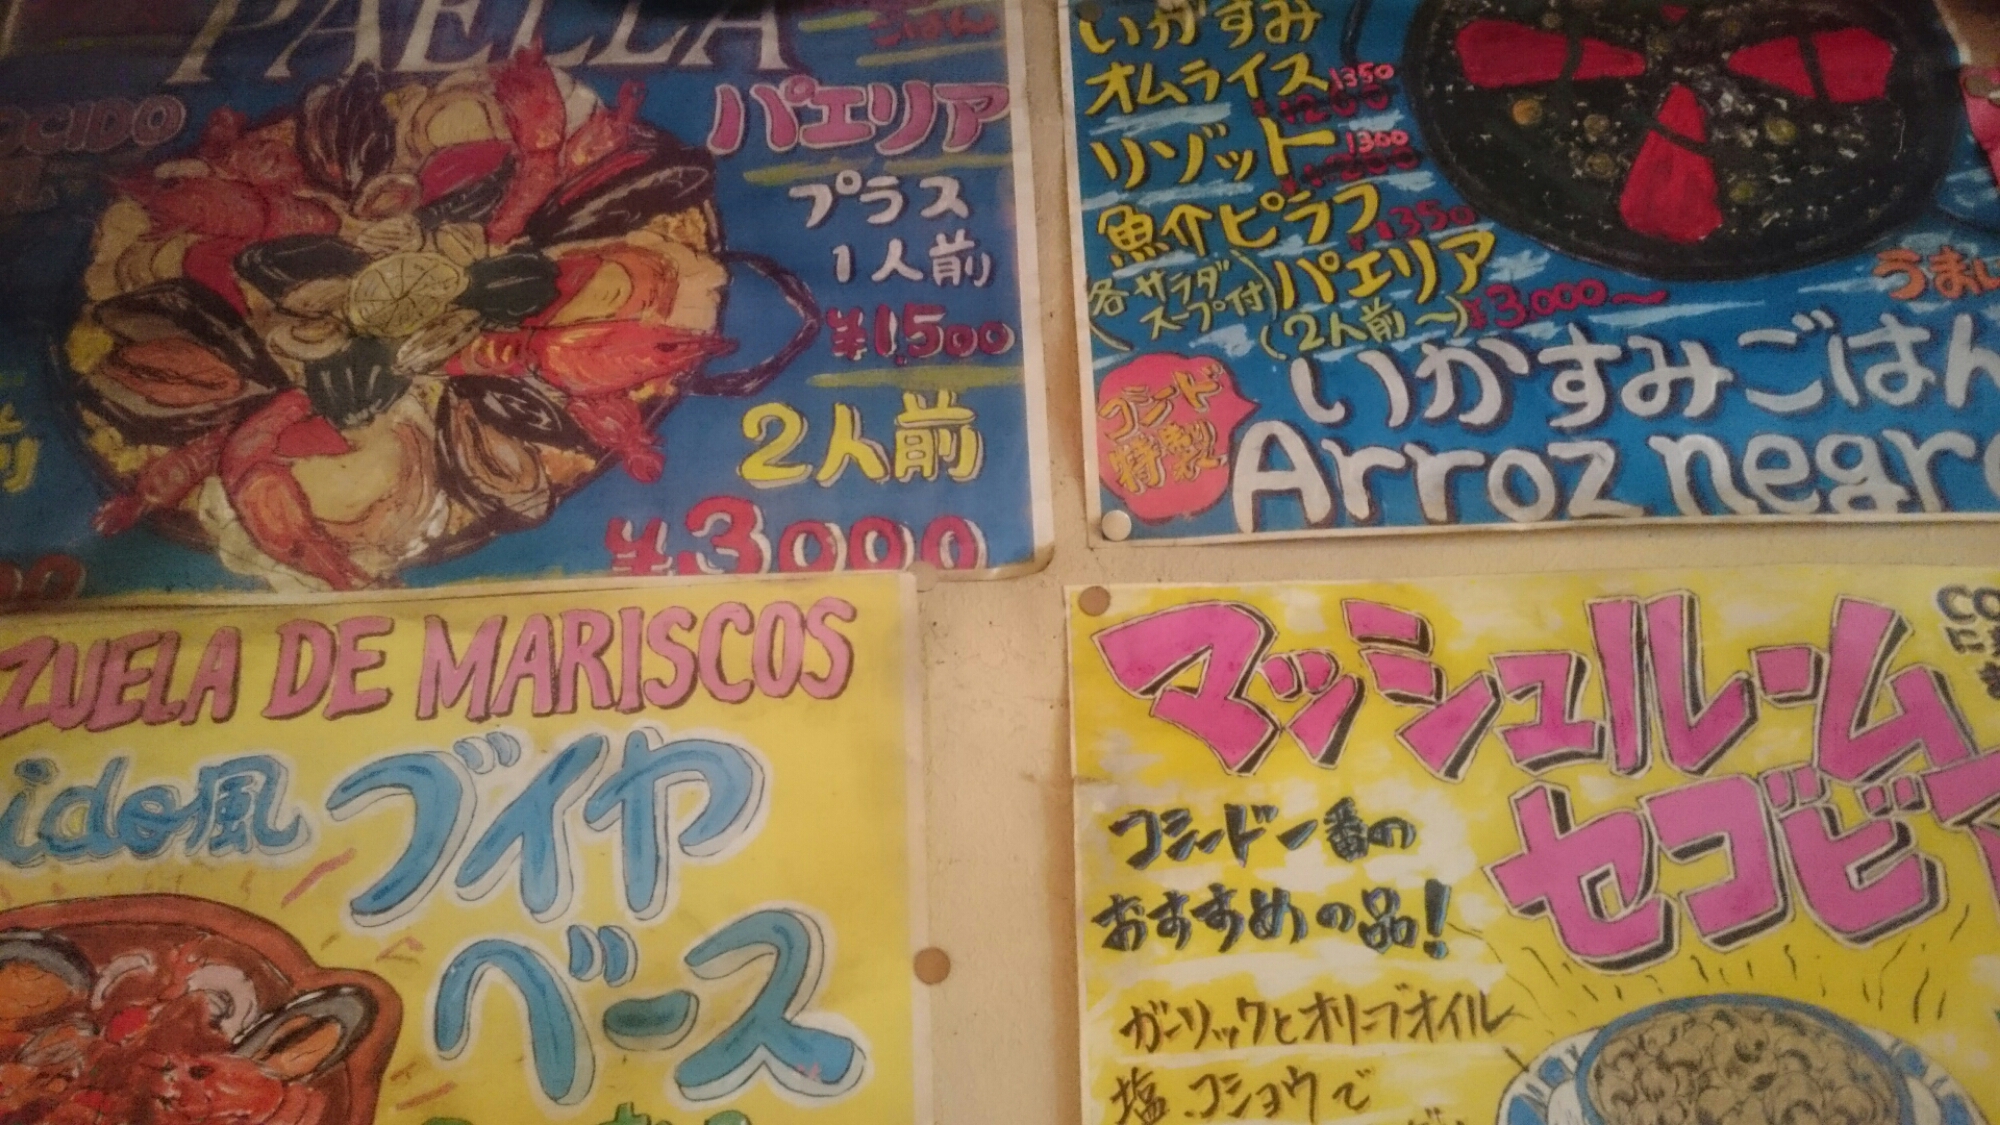 PAELLA
ごはん
OCIDO
パエリア
プラス
1人前
¥1,500
2人前
¥3000
いかすみ
オムライス 1350
リゾット 1300
魚介ピラフ 1350
(各サラダスープ付)
パエリア
(2人前〜) ¥3,000〜
うまい
コシード
特製
いかすみごはん
Arroz negro
ZUELA DE MARISCOS
ido風
ブイヤ
ベース
マッシュルーム
セゴビア
コシード一番の
おすすめの品!
ガーリックとオリーブオイル
塩.コショウで